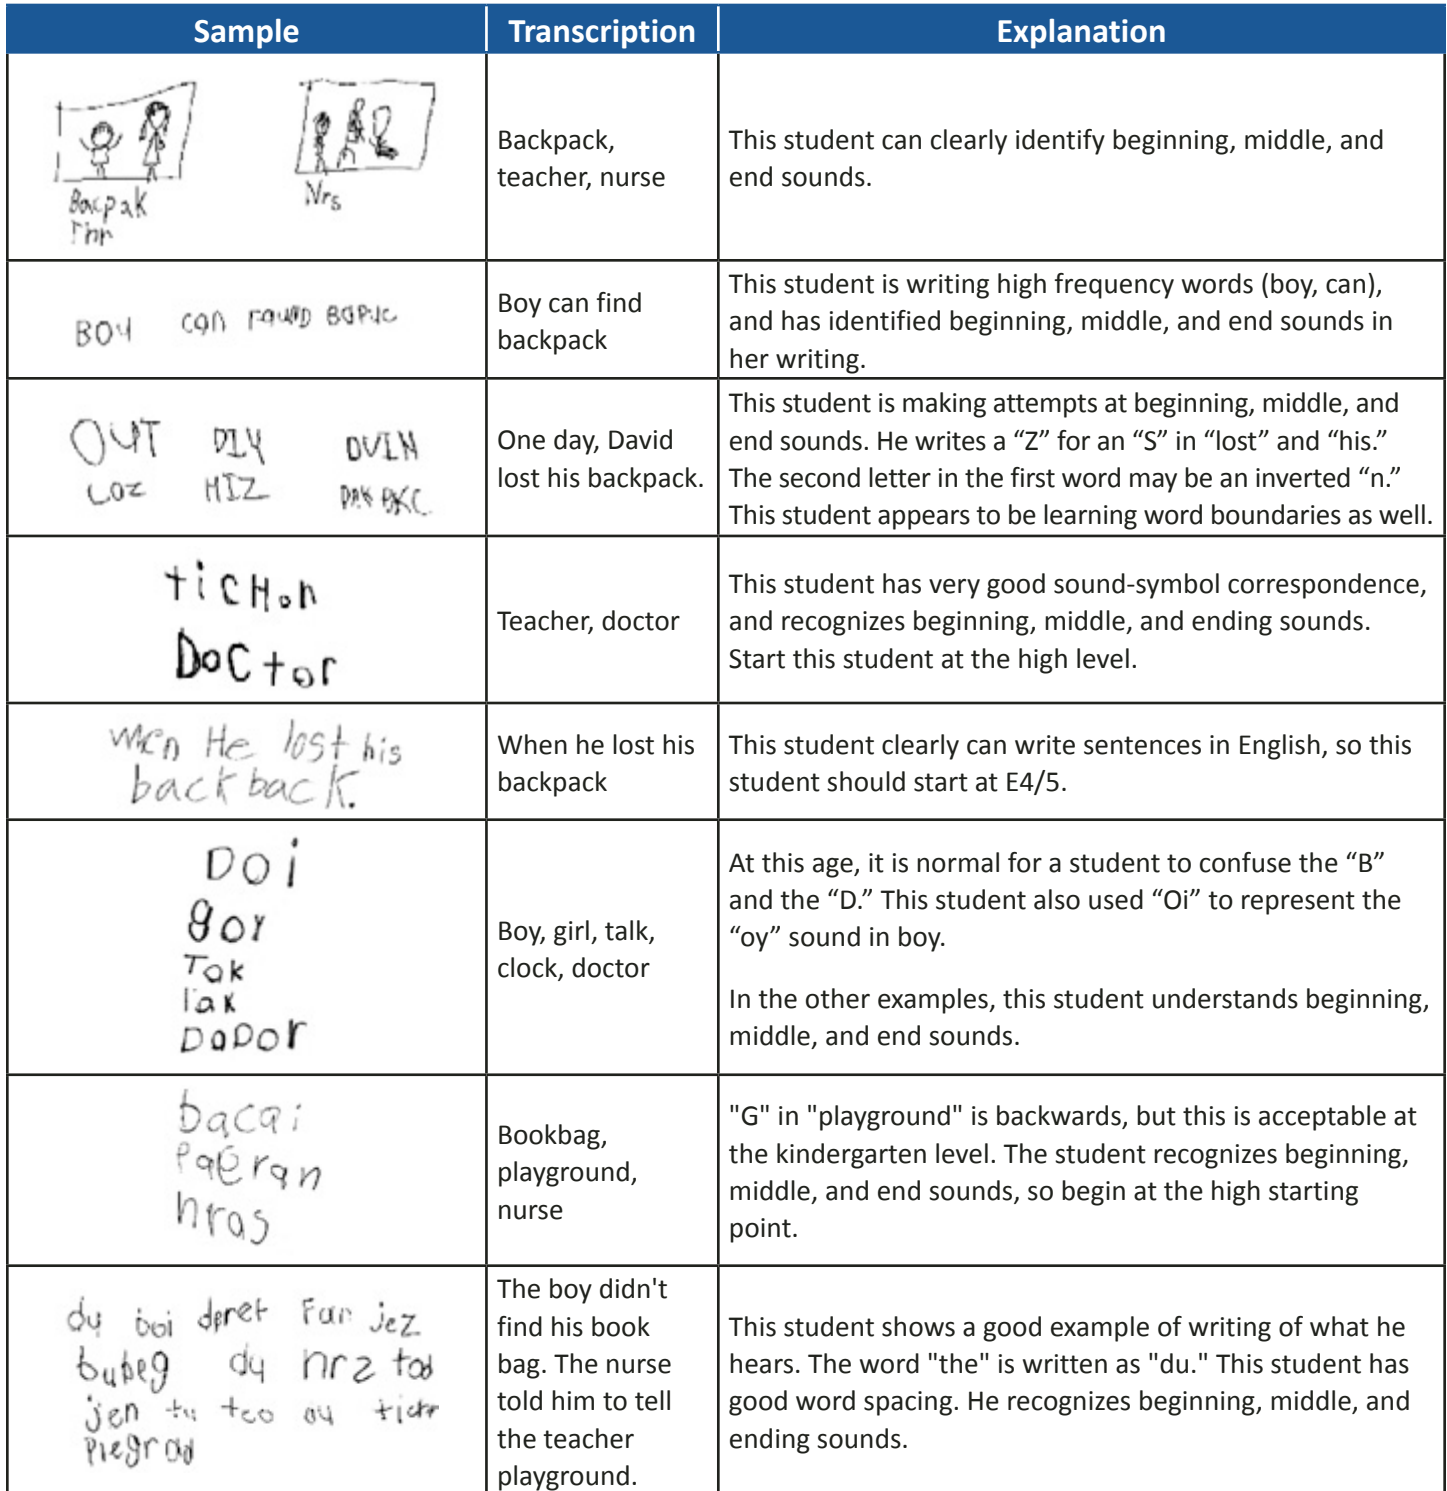 Sample Transcription Explanation
Bacpak
Thr
Nrs
Backpack,
teacher, nurse
This student can clearly identify beginning, middle, and
end sounds.
BOY can
Boy can find
backpack
This student is writing high frequency words (boy, can),
and has identified beginning, middle, and end sounds in
her writing.
OUT DIY DVIN
LOZ HIZ
One day, David
lost his backpack.
This student is making attempts at beginning, middle, and
end sounds. He writes a “Z” for an “S” in “lost” and “his.”
The second letter in the first word may be an inverted “n.”
This student appears to be learning word boundaries as well.
ticHon
DoCtor
Teacher, doctor
This student has very good sound-symbol correspondence,
and recognizes beginning, middle, and ending sounds.
Start this student at the high level.
wen He lost his
back back.
When he lost his
backpack
This student clearly can write sentences in English, so this
student should start at E4/5.
DOi
goy
Tak
lak
DaDor
Boy, girl, talk,
clock, doctor
At this age, it is normal for a student to confuse the “B”
and the “D.” This student also used “Oi” to represent the
“oy” sound in boy.
In the other examples, this student understands beginning,
middle, and end sounds.
bacai
nras
Bookbag,
playground,
nurse
"G" in "playground" is backwards, but this is acceptable at
the kindergarten level. The student recognizes beginning,
middle, and end sounds, so begin at the high starting
point.
du boi Fan jez
bubeg du nrz tod
jen tu
The boy didn't
find his book
bag. The nurse
told him to tell
the teacher
playground.
This student shows a good example of writing of what he
hears. The word "the" is written as "du." This student has
good word spacing. He recognizes beginning, middle, and
ending sounds.